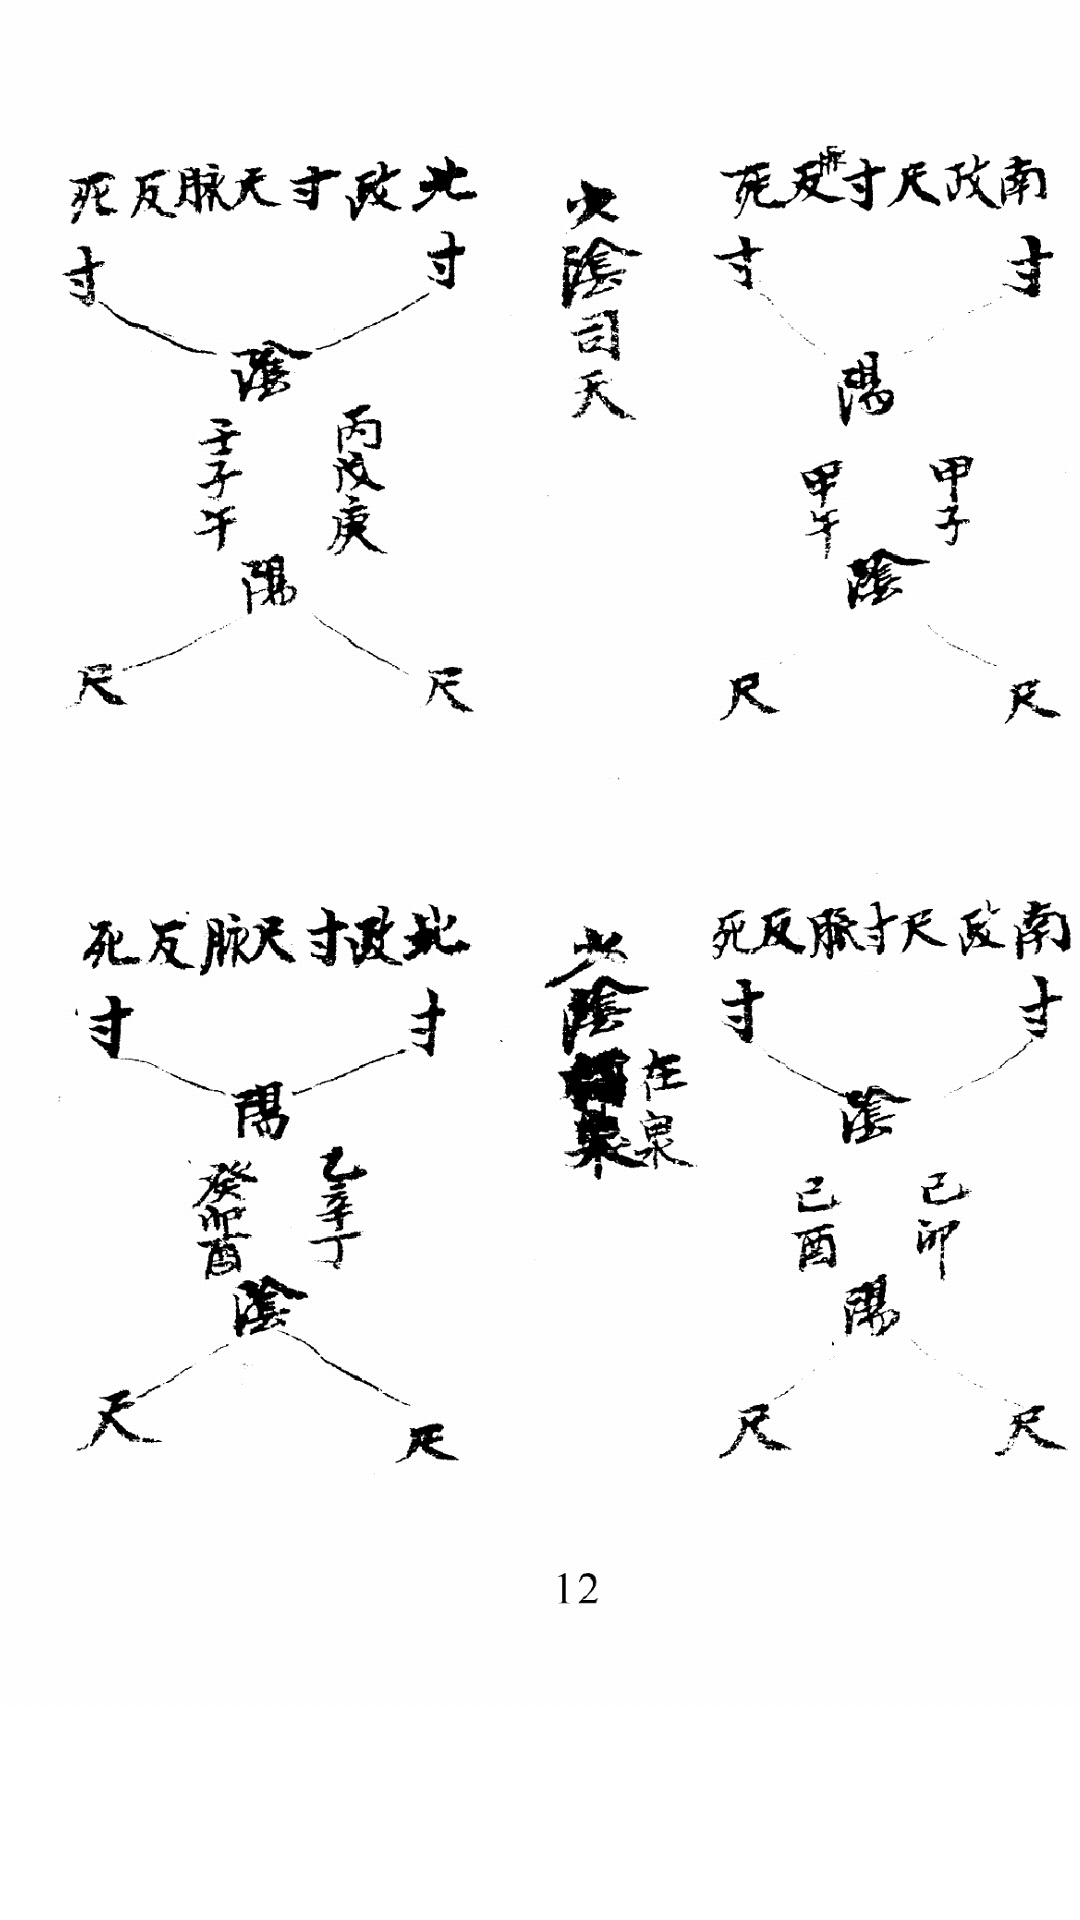 南政尺寸脉反死
寸 寸
陽
甲子
甲午
陰
尺 尺
少陰司天
北政寸尺脉反死
寸 寸
陰
丙戊庚
壬子午
陽
尺 尺
南政尺寸脈反死
寸 寸
陰
己卯
己酉
陽
尺 尺
少陰
在泉
北政寸尺脈反死
寸 寸
陽
乙辛丁
癸卯酉
陰
尺 尺
12